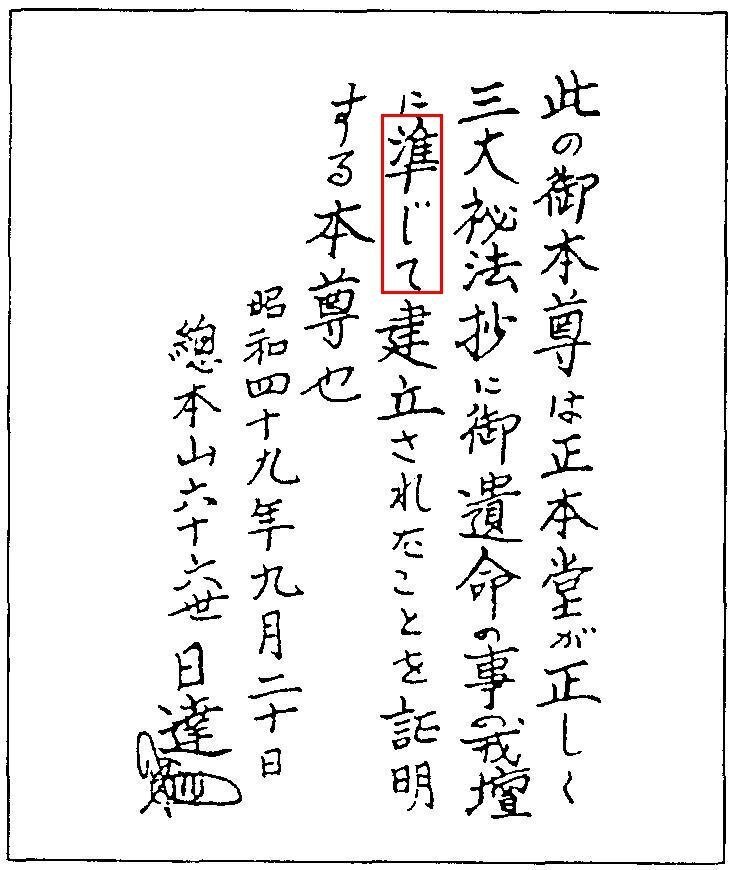 此の御本尊は正本堂が正しく
三大秘法抄に御遺命の事の戒壇
に準じて建立されたことを証明
する本尊也
昭和四十九年九月二十日
總本山六十六世 日達